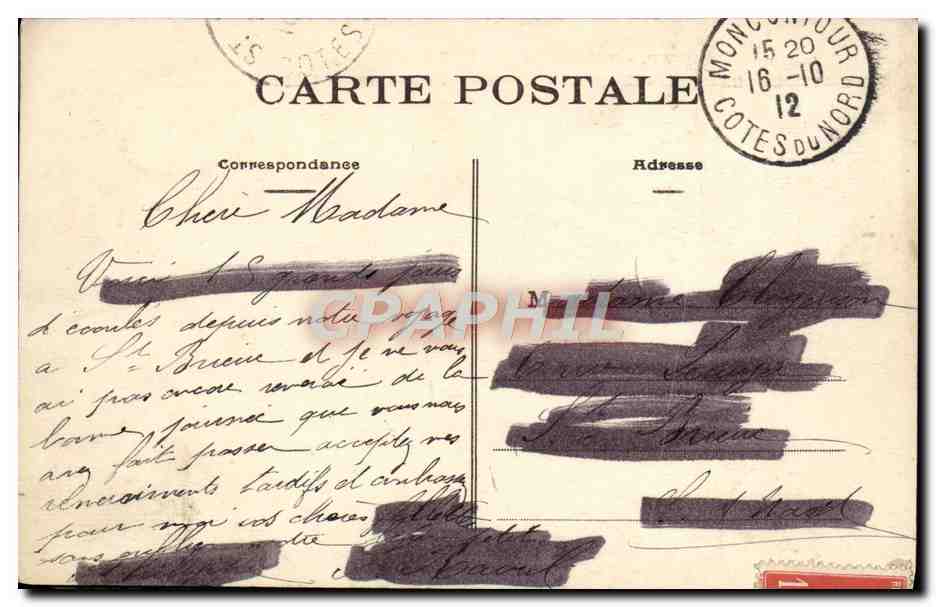 CÔTES
CARTE POSTALE
MONCONTOUR
15 20
16 -10
12
COTES DU NORD
Correspondance
Adresse
Chère Madame
Voici 15 grands jours
d'écoulés depuis notre voyage
a St Brieuc et je ne vous
ai pas encore remercié de la
bonne journée que vous nous
avez fait passer acceptez mes
remerciments tardifs et embrassez
pour moi vos chères
sans oublier votre petit
Madame
St Brieuc
CPAPHIL